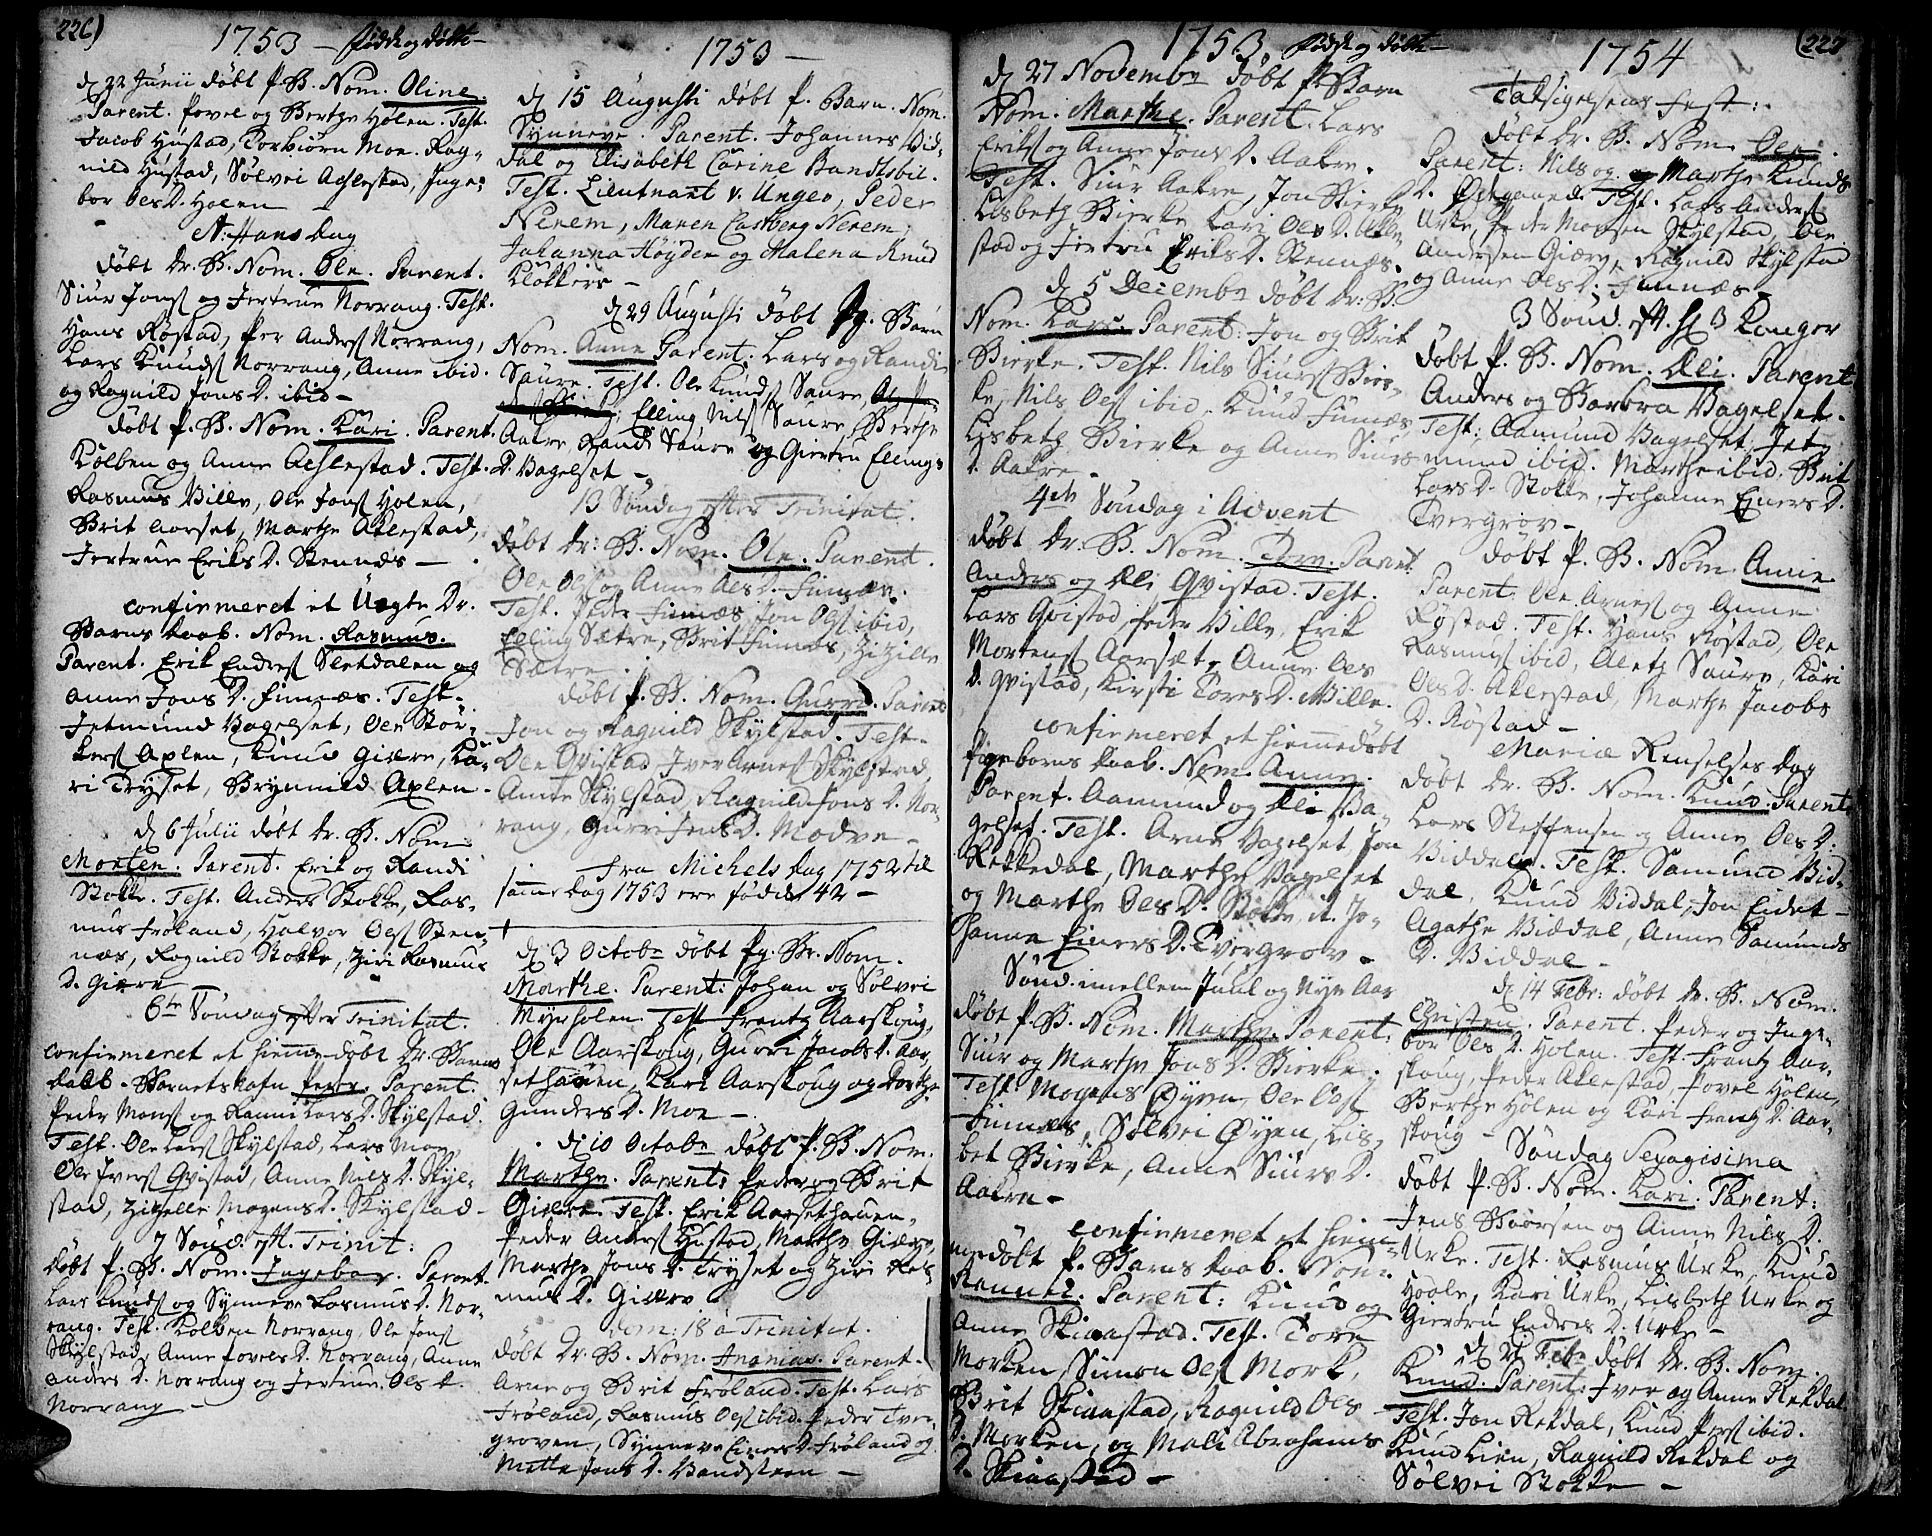 226)
1753 — fødde og døbte —
d 22 Junii døbt P. B. Nom. Oline.
Parent. Povel og Berthe Holen. Test.
Jacob Hustad, Torbiørn Moe. Rag-
nild Hustad, Sølvei Achlestad, Inge-
bor Oes D. Holen —
St. Hans Dag
døbt Dr. B. Nom. Ole. Parent.
Siur Jons og Jertrue Norrang. Test.
Hans Røstad, Per Anders Norrang,
Lars Knuds Norrang, Anne ibid.
og Ragnild Jons D. ibid —
døbt P. B. Nom. Kari. Parent.
Kolben og Anne Achlestad. Test.
Rasmus Bille, Ole Jons Holen,
Brit Aarset, Marthe Aklestad,
Jertrue Eriks D. Stennæs —
confirmeret et Uægte Dr.
Barns daab. Nom. Rasmus.
Parent. Erik Endres Sletdalen og
Anne Jons D. Finnæs. Test.
Jetmund Bagelset, Ole Stør-
kers Axlen, Knud Giære, Ka-
ri Tryset, Brynnild Axlen —
d 6 Julii døbt Dr. B. Nom.
Morten. Parent. Erik og Randi
Stokke. Test. Anders Stokke, Ras-
mus Frøland, Halvor Oes Sten-
næs, Ragnild Stokke, Ziri Rasmus
D. Giære
6te Søndag effter Trinitat.
confirmeret et hiemmedøbt Dr. Barns
daab. Barnets Nafn Peder. Parent.
Peder Mons og Ranni Lars D. Skylstad.
Test. Ole Lars Skylstad, Lars Moe,
Ole Ivers Qvistad, Anne Nils D. Skyl-
stad, Zizelle Mogens D. Skylstad —
7 Sønd. eft. Trinit:
døbt P. B. Nom. Ingebor. Parent.
Lars Knuds og Synneve Rasmus D. Nor-
rang. Test. Kolben Norrang, Ole Jons
Skylstad, Anne Povels D. Norrang, Anne
Anders D. Norrang og Jertrue Oles D.
Norrang —
1753 —
d 15 Augusti døbt P. Barn. Nom.
Synneve. Parent. Johannes Vid-
dal og Elisabeth Carine Bandtsbil.
Test. Lieutnant v. Unger, Peder
Nerem, Maren Castberg Nerem,
Johanna Høyder og Malena Knud
Kløkkers —
d 29 Augusti døbt Pg. Barn
Nom. Anne Parent. Lars og Randi
Saure. Test. Ole Knuds Saure,
Elling Nils Saure, Berthe
Aakre, Randi Saure og Giertru Ellings
D. Bagelset —
13 Søndag effter Trinitat.
døbt Dr: B. Nom. Ole. Parent.
Ole Oes og Anne Oes D. Finnæs.
Test. Peder Finnæs, Jon Oes ibid,
Elling Sætre, Brit Finnæs, Zizille
Sætre.
døbt P. B. Nom. Gurri. Parent
Jon og Ragnild Skylstad. Test.
Ole Qvistad Iver Arnes Skylstad,
Anne Skylstad, Ragnild Jons D. Nor-
rang, Gurri Jens D. Modve —
Fra Michels Dag 1752 til
samme Dag 1753 ere fødde 42 —
d 3 Octobr døbt Pg. Br. Nom.
Marthe. Parent: Johan og Sølvei
Myrholen. Test. Frantz Aarskoug,
Ole Aarskoug, Gurri Jacobs D. Aar-
sethauen, Kari Aarskoug og Dorthe
Gunders D. Moe —
d 10 Octobr døbt P. B. Nom.
Marthe. Parent: Peder og Brit
Giære. Test. Erik Aarsethauen,
Peder Anders Hustad, Marthe Giære,
Marthe Jons D. Tryset og Ziri Ras-
mus D. Giære
Dom: 18 a Trinitat.
døbt Dr. B. Nom. Ananias. Parent.
Arne og Brit Frøland. Test. Lars
Frøland, Rasmus Oes ibid. Peder Tver-
groven, Synneve Einers D. Frøland og
Mette Jons D. Bandsteen —
1753 fødde og døbte —
d 27 Novembr døbt P. Barn
Nom. Marthe. Parent. Lars
Eriks og Anne Jons D. Aakre.
Test. Siur Aakre, Jon Bierke
Lisbeth Bierke Kari Oes D. Akle-
stad og Jertru Eriks D. Stennæs.
d 5 Decembr døbt Dr: B.
Nom. Lars Parent: Jon og Brit
Bierke. Test. Nils Siurs Bier-
ke, Nils Oes ibid, Knud Finnæs,
Lisbeth Bierke og Anne Siurs
D. Aakre —
4de Søndag i Advent
døbt Dr. B. Nom. Parent.
Anders og Eli Qvistad. Test.
Lars Qvistad, Peder Bille, Erik
Mortens Aarsæt, Anne Oes
D. Qvistad, Kirsti Tores D. Bille.
confirmeret et hiemmedøbt
Pigebarns daab. Nom. Anne.
Parent. Aamund og Eli Ba-
gelset. Test. Arne Bagelset, Jon
Rekkedal, Marthe Bagelset
og Marthe Oes D. Stokke, it. Jo-
hanna Einers D. Tvergrov —
Sønd. imellem Juul og Nyt Aar
døbt P. B. Nom. Marthe. Parent:
Siur og Marthe Jons D. Bierke.
Test. Mogens Øyen, Ole Oes
Finnæs, Sølvei Øyen, Lis-
bet Bierke, Anne Siurs D.
Aakre —
confirmeret et hiem-
medøbt P. Barns daab. Nom.
Rannei. Parent: Knud og
Anne Skiaastad. Test. Tore
Morken, Simon Oes Mork,
Brit Skiaastad, Ragnild Oes
D. Morken, og Mali Abrahams
D. Skiaastad —
227
1754
Taksigelsens Fest:
døbt Dr. B. Nom. Ole.
Parent: Nils og Marthe Knuds
D. Øvregaard. Test. Lars Anders
Urke, Peder Monsen Skylstad, Ole
Andersen Giære, Ragnild Skylstad
og Anne Oes D. Finnæs —
3 Sønd. eft. H 3 Konger
døbt P. B. Nom. Eli. Parent
Anders og Barbra Bagelset.
Test: Aamund Bagelset, Jet-
mund ibid. Marthe ibid, Brit
Lars D. Stokke, Johanne Einers D.
Tvergrov —
døbt P. B. Nom. Anne
Parent. Ole Arnes og Anne
Røstad. Test. Hans Røstad, Ole
Rasmus ibid, Aleth Saure, Kari
Oes D. Aklestad, Marthe Jacobs
D. Røstad —
Mariæ Renselses Dag
døbt Dr. B. Nom. Knud. Parent.
Lars Steffensen og Anne Oes D.
Viddal. Test. Samund Vid-
dal, Knud Viddal, Jon Eidet —
Agathe Viddal, Anne Samunds
D. Viddal —
d 14 Febr: døbt Dr. B. Nom.
Christen. Parent. Peder og Inge-
bor Oes D. Holen. Test. Frantz Aar-
skoug, Peder Aklestad, Povel Holen,
Berthe Holen og Kari Frantz D. Aar-
skoug —
Søndag Sexagesima
døbt P. B. Nom. Kari. Parent:
Jens Baarsen og Anne Nils D.
Urke. Test. Rasmus Urke, Knud
Hoole, Kari Urke, Lisbeth Urke og
Giertru Endres D. Urke —
d 21 Febr døbt Dr. B. Nom.
Knud. Parent: Iver og Anne Rekdal
Test. Jon Rekdal, Knud Pers ibid.
Knud Lien, Ragnild Rekdal og
Sølvei Stokke —